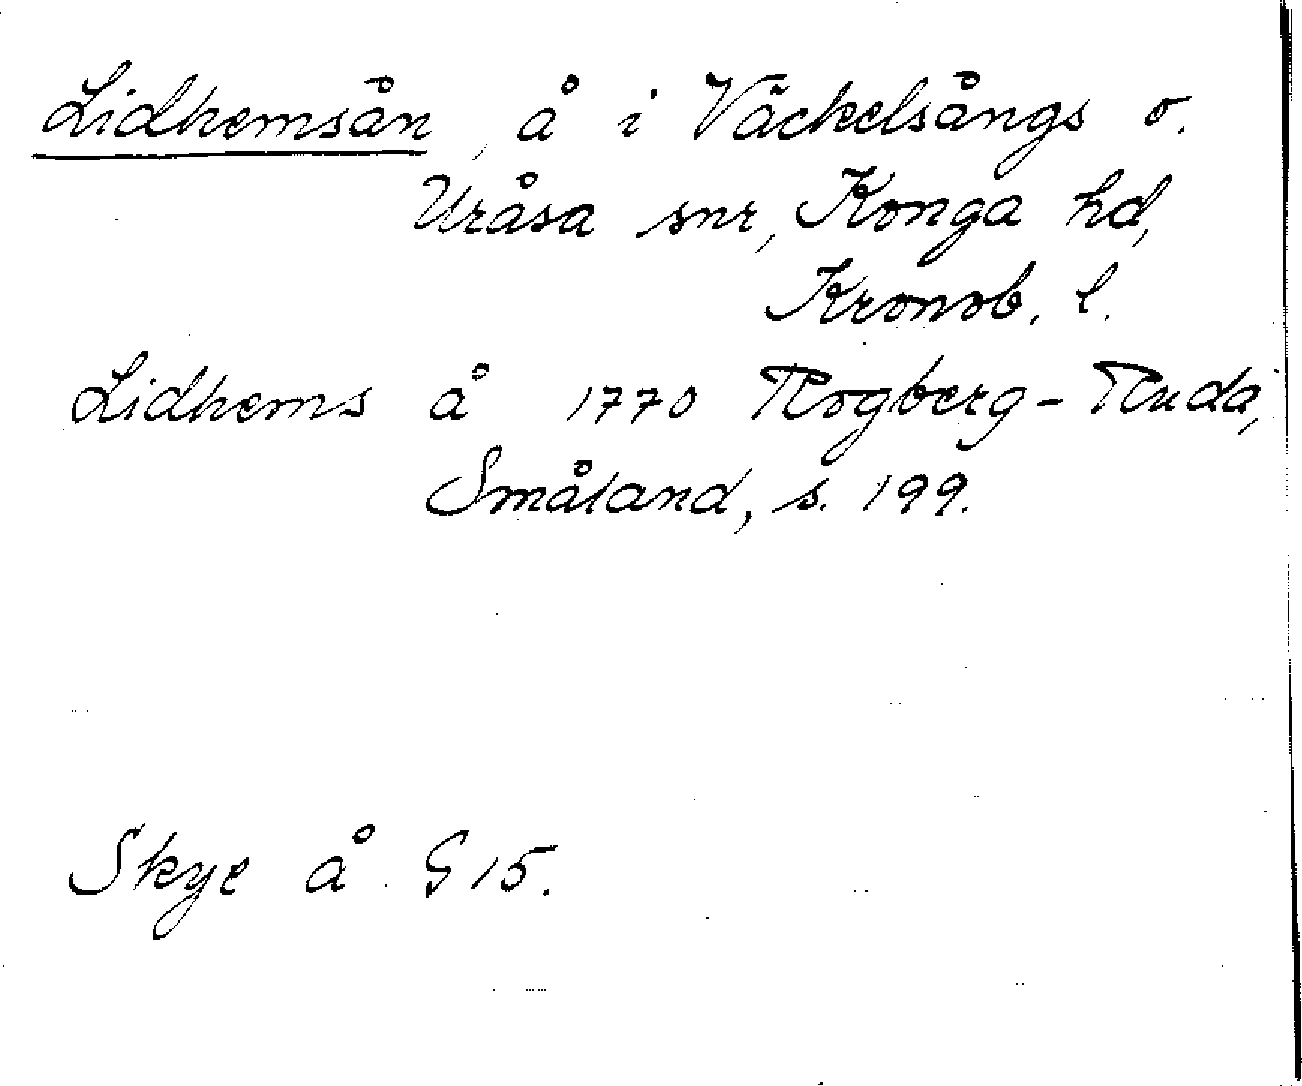 Lidhemsån, å i Väckelsångs o.
Uråsa snr, Konga hd,
Kronob. l.
Lidhems å 1770 Rogberg-Ruda,
Småland, s. 199.
Skye å G 15.